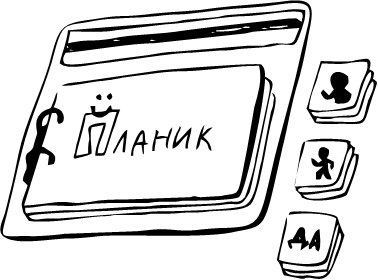 Планик
ДА